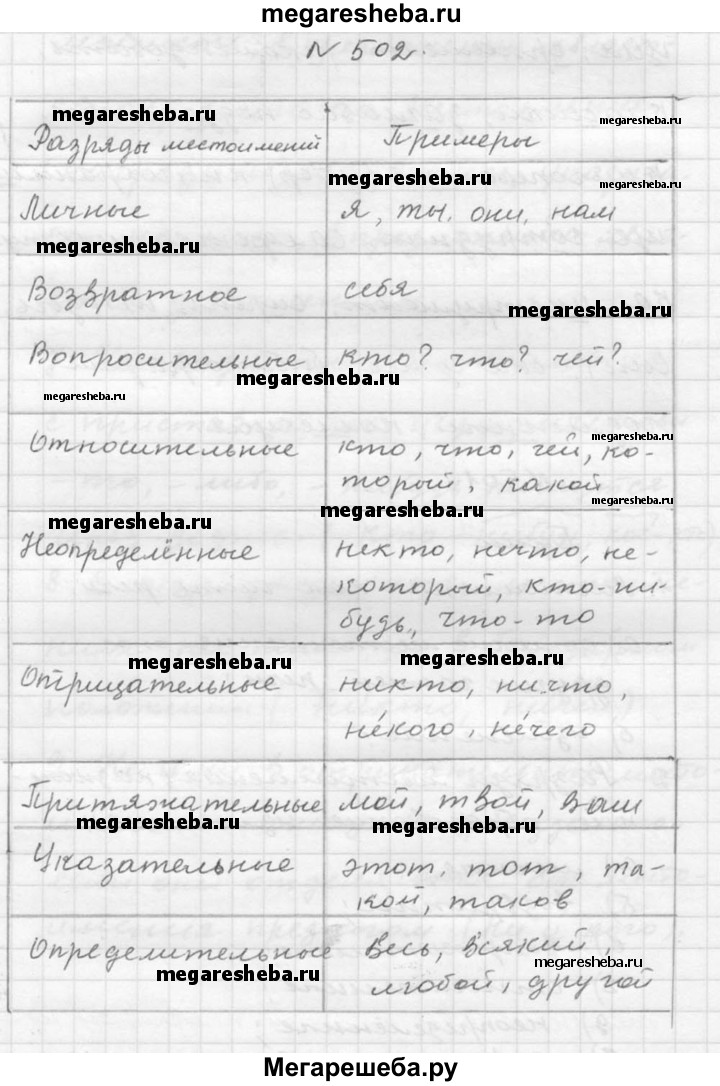 megaresheba.ru
N 502.
megaresheba.ru
megaresheba.ru
Разряды местоимений Примеры
megaresheba.ru
megaresheba.ru
Личные я, ты, они, нам
megaresheba.ru
Возвратное себя
megaresheba.ru
Вопросительные кто? что? чей?
megaresheba.ru
megaresheba.ru
megaresheba.ru
Относительные кто, что, чей, ко-
торый, какой
megaresheba.ru
megaresheba.ru
megaresheba.ru
Неопределённые некто, нечто, не-
который, кто-ни-
будь, что-то
megaresheba.ru
megaresheba.ru
Отрицательные никто, ничто,
не́кого, не́чего
Притяжательные мой, твой, ваш
megaresheba.ru
megaresheba.ru
Указательные этот, тот, та-
кой, таков
Определительные весь, всякий,
megaresheba.ru
megaresheba.ru
любой, другой
Мегарешеба.ру